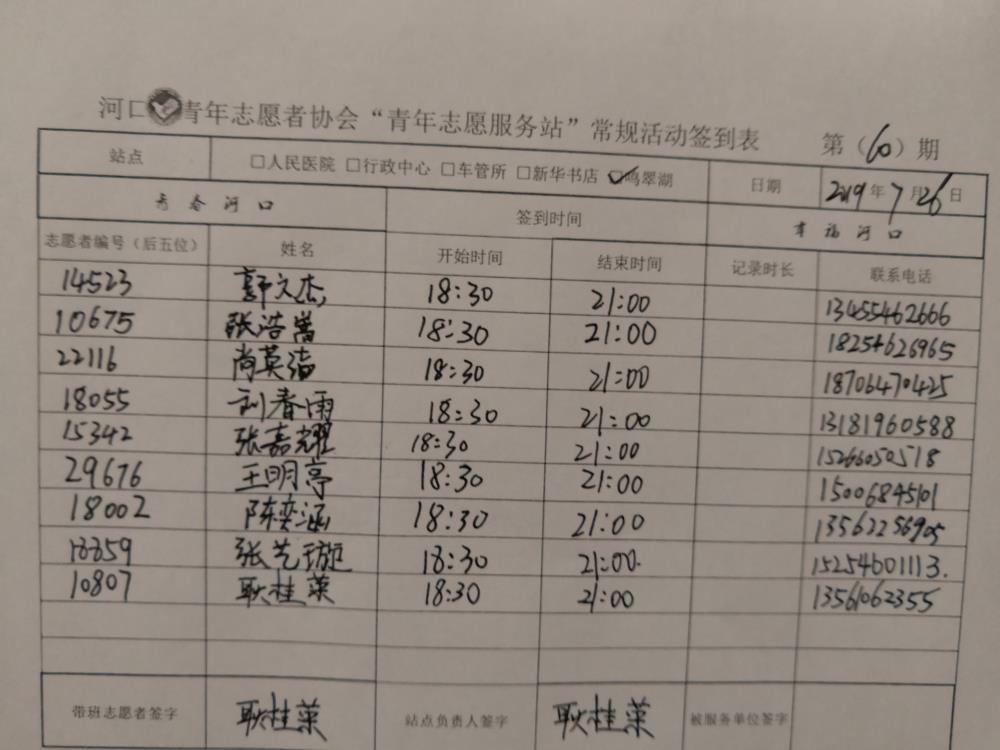 河口青年志愿者协会“青年志愿服务站”常规活动签到表 第（60）期
站点 □人民医院 □行政中心 □车管所 □新华书店 ☑鸣翠湖 日期 2019年7月26日
青春河口 签到时间 幸福河口
志愿者编号（后五位） 姓名 开始时间 结束时间 记录时长 联系电话
14523 郭文杰 18:30 21:00 13455462666
10675 张浩嵩 18:30 21:00 18254626965
22116 尚英洁 18:30 21:00 18706470425
18055 刘春雨 18:30 21:00 13181960588
15342 张嘉耀 18:30 21:00 15266050518
29676 王明亭 18:30 21:00 15006845101
18002 陈奕涵 18:30 21:00 13562256905
18859 张艺璇 18:30 21:00. 15254601113.
10807 耿桂荣 18:30 21:00 13561062355
带班志愿者签字 耿桂荣 站点负责人签字 耿桂荣 被服务单位签字